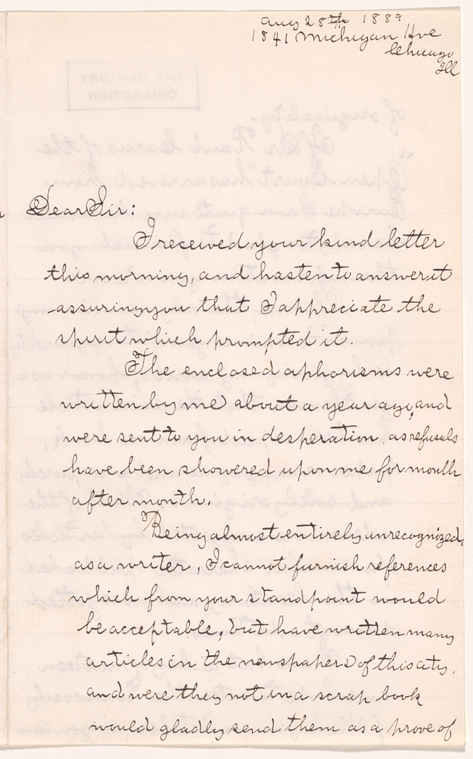 Aug 28th 1889
1841 Michigan Ave
Chicago
Ill
Dear Sir:
I received your kind letter
this morning, and hasten to answer it
assuring you that I appreciate the
spirit which prompted it.
The enclosed aphorisms were
written by me about a year ago, and
were sent to you in desperation, as refusals
have been showered upon me for month
after month.
Being almost entirely unrecognized,
as a writer, I cannot furnish references
which from your standpoint would
be acceptable, but have written many
articles in the newspapers of this city,
and were they not in a scrap book
would gladly send them as a prove of
THE CENTURY
COLLECTION
of originality.